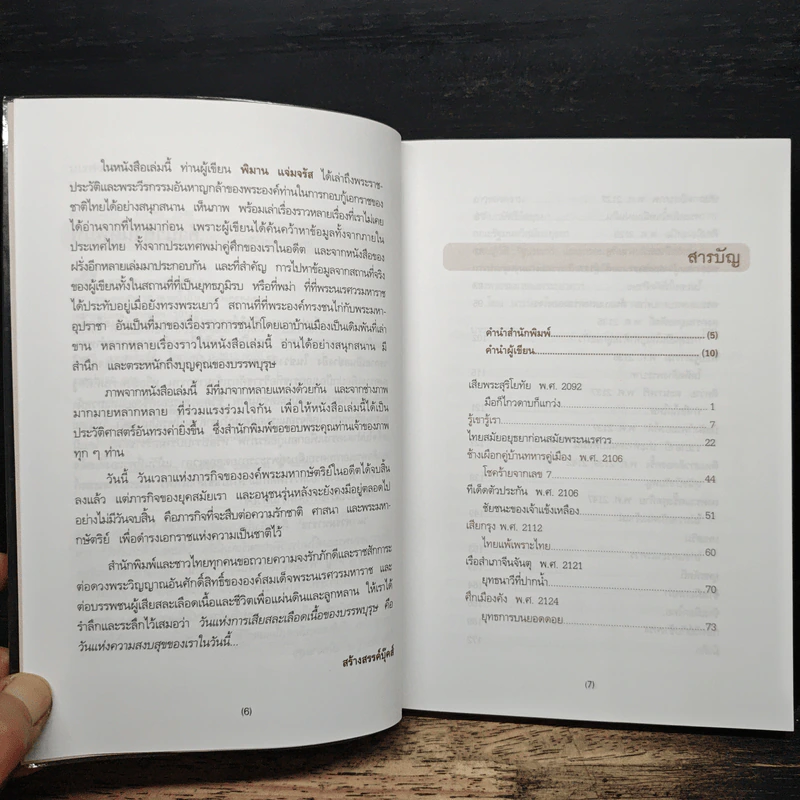 ในหนังสือเล่มนี้ ท่านผู้เขียน พิมาน แจ่มจรัส ได้เล่าถึงพระราช-
ประวัติและพระวีรกรรมอันหาญกล้าของพระองค์ท่านในการกอบกู้เอกราชของ
ชาติไทยได้อย่างสนุกสนาน เห็นภาพ พร้อมเล่าเรื่องราวหลายเรื่องที่เราไม่เคย
ได้อ่านจากที่ไหนมาก่อน เพราะผู้เขียนได้ค้นคว้าหาข้อมูลทั้งจากภายใน
ประเทศไทย ทั้งจากประเทศพม่าคู่ศึกของเราในอดีต และจากหนังสือของ
ฝรั่งอีกหลายเล่มมาประกอบกัน และที่สำคัญ การไปหาข้อมูลจากสถานที่จริง
ของผู้เขียนทั้งในสถานที่ที่เป็นยุทธภูมิรบ หรือที่พม่า ที่ที่พระนเรศวรมหาราช
ได้ประทับอยู่เมื่อยังทรงพระเยาว์ สถานที่ที่พระองค์ทรงชนไก่กับพระมหา-
อุปราชา อันเป็นที่มาของเรื่องราวการชนไก่โดยเอาบ้านเมืองเป็นเดิมพันที่เล่า
ขาน หลากหลายเรื่องราวในหนังสือเล่มนี้ อ่านได้อย่างสนุกสนาน มี
สำนึก และตระหนักถึงบุญคุณของบรรพบุรุษ
ภาพจากหนังสือเล่มนี้ มีที่มาจากหลายแหล่งด้วยกัน และจากช่างภาพ
มากมายหลากหลาย ที่ร่วมแรงร่วมใจกัน เพื่อให้หนังสือเล่มนี้ได้เป็น
ประวัติศาสตร์อันทรงค่ายิ่งขึ้น ซึ่งสำนักพิมพ์ขอขอบพระคุณท่านเจ้าของภาพ
ทุก ๆ ท่าน
วันนี้ วันเวลาแห่งภารกิจขององค์พระมหากษัตริย์ในอดีตได้จบสิ้น
ลงแล้ว แต่ภารกิจของยุคสมัยเรา และอนุชนรุ่นหลังจะยังคงมีอยู่ตลอดไป
อย่างไม่มีวันจบสิ้น คือภารกิจที่จะสืบต่อความรักชาติ ศาสนา และพระมหา-
กษัตริย์ เพื่อดำรงเอกราชแห่งความเป็นชาติไว้
สำนักพิมพ์และชาวไทยทุกคนขอถวายความจงรักภักดีและราชสักการะ
ต่อดวงพระวิญญาณอันศักดิ์สิทธิ์ขององค์สมเด็จพระนเรศวรมหาราช และ
ต่อบรรพชนผู้เสียสละเลือดเนื้อและชีวิตเพื่อแผ่นดินและลูกหลาน ให้เราได้
รำลึกและระลึกไว้เสมอว่า วันแห่งการเสียสละเลือดเนื้อของบรรพบุรุษ คือ
วันแห่งความสงบสุขของเราในวันนี้...
สร้างสรรค์บุ๊คส์
(6)
สารบัญ
คำนำสำนักพิมพ์ (5)
คำนำผู้เขียน (10)
เสียพระสุริโยทัย พ.ศ. 2092
มือก็ไกวดาบก็แกว่ง 1
รู้เขารู้เรา 7
ไทยสมัยอยุธยาก่อนสมัยพระนเรศวร 22
ช้างเผือกคู่บ้านทหารคู่เมือง พ.ศ. 2106
โชคร้ายจากเลข 7 44
ทีเด็ดตัวประกัน พ.ศ. 2106
ชัยชนะของเจ้าแข้งเหลือง 51
เสียกรุง พ.ศ. 2112
ไทยแพ้เพราะไทย 60
เรือสำเภาจีนจันตุ พ.ศ. 2121
ยุทธนาวีที่ปากน้ำ 70
ศึกเมืองคัง พ.ศ. 2124
ยุทธการบนยอดดอย 73
(7)